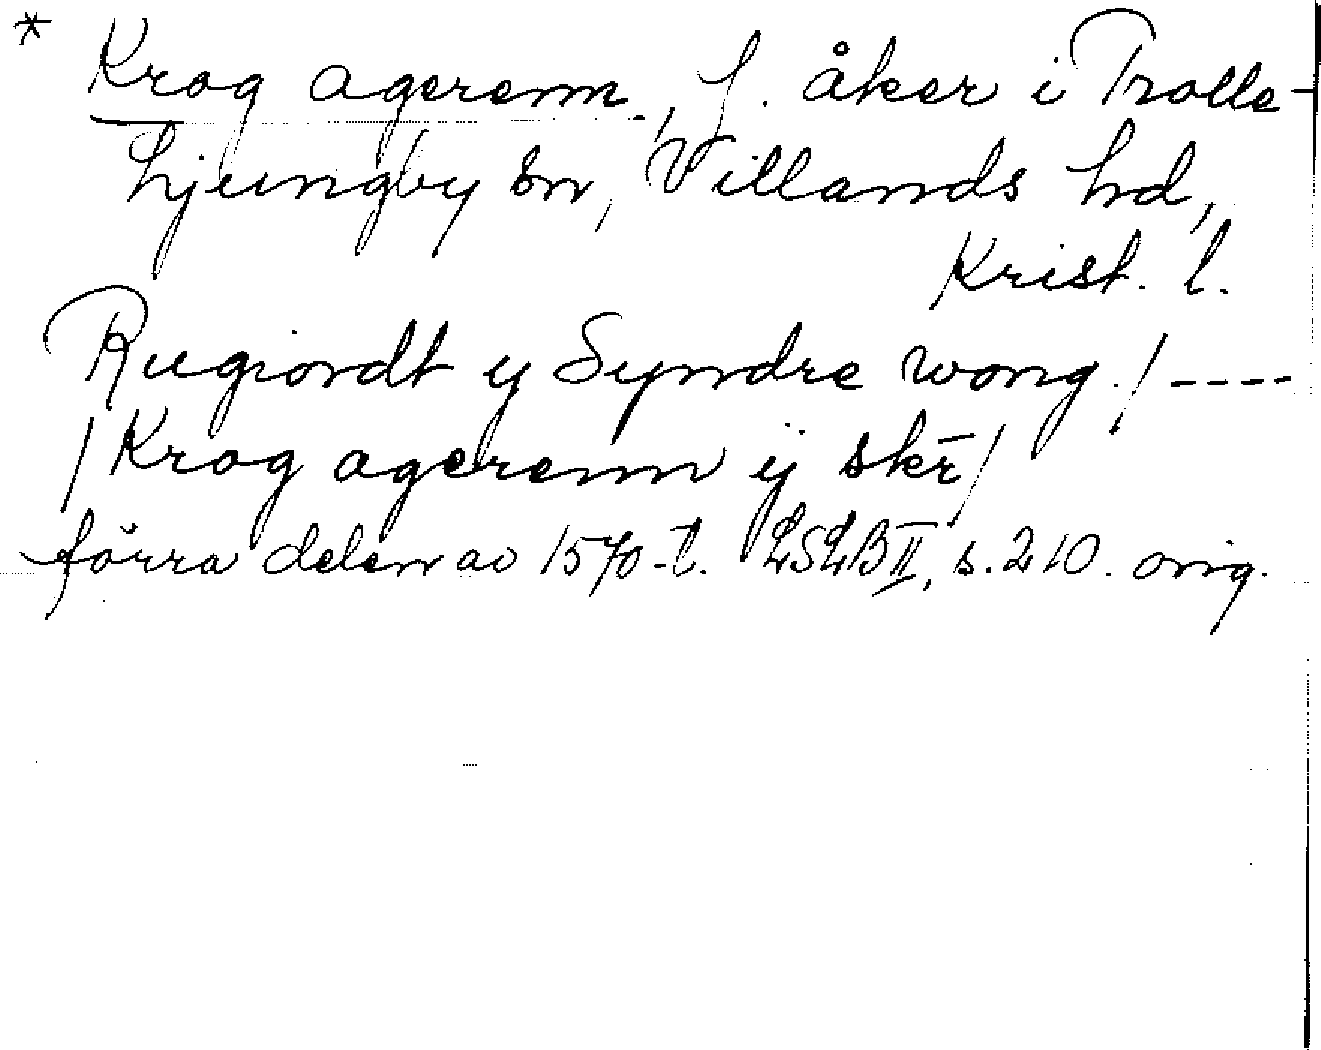 * Krog agerenn, f. åker i Trolle-
Ljungby sn, Villands hd,
Krist. l.
Rugiordt y Syndre wong / ----
/ Krog agerenn ij skr̄ /
förra delen av 1570-t. LSLB II, s. 210. orig.